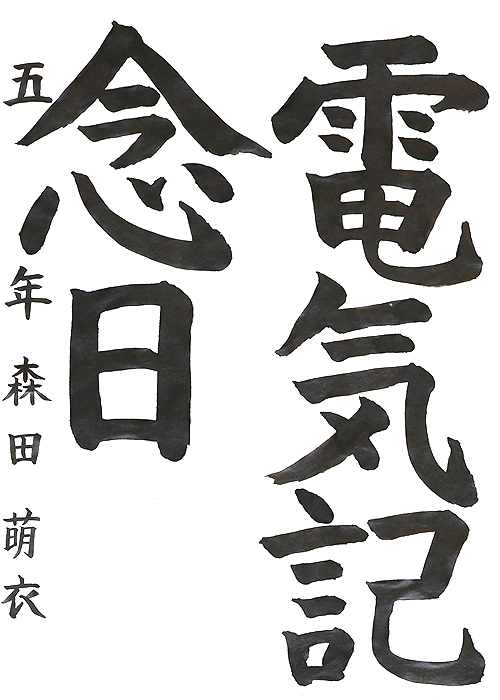 電気記
念日
五年 森田 萌衣